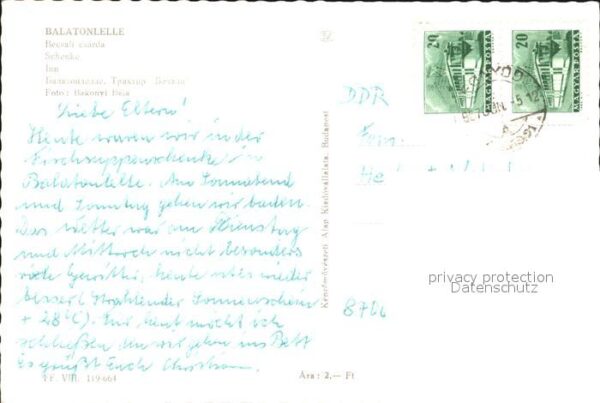 BALATONLELLE
Becsali csárda
Schenke
Inn
Балатонлелле. Трактир
Foto: Bakonyi Béla
Liebe Eltern!
Heute waren wir in der
in
Balatonlelle. Am Sonnabend
und Sonntag gehen wir baden.
Das Wetter war am Dienstag
und Mittwoch nicht besonders
viele Gewitter, heute ist es wieder
besser (Strahlender Sonnenschein
+28°C). Für heut möcht ich
schließen, denn wir gehen ins Bett
Es grüßt Euch Christian.
FF. VIII. 119-664
Ára: 2.— Ft
Képzőművészeti Alap Kiadóvállalata, Budapest
20 MAGYAR POSTA
20 MAGYAR POSTA
DDR
Fam.
He
8706
privacy protection
Datenschutz